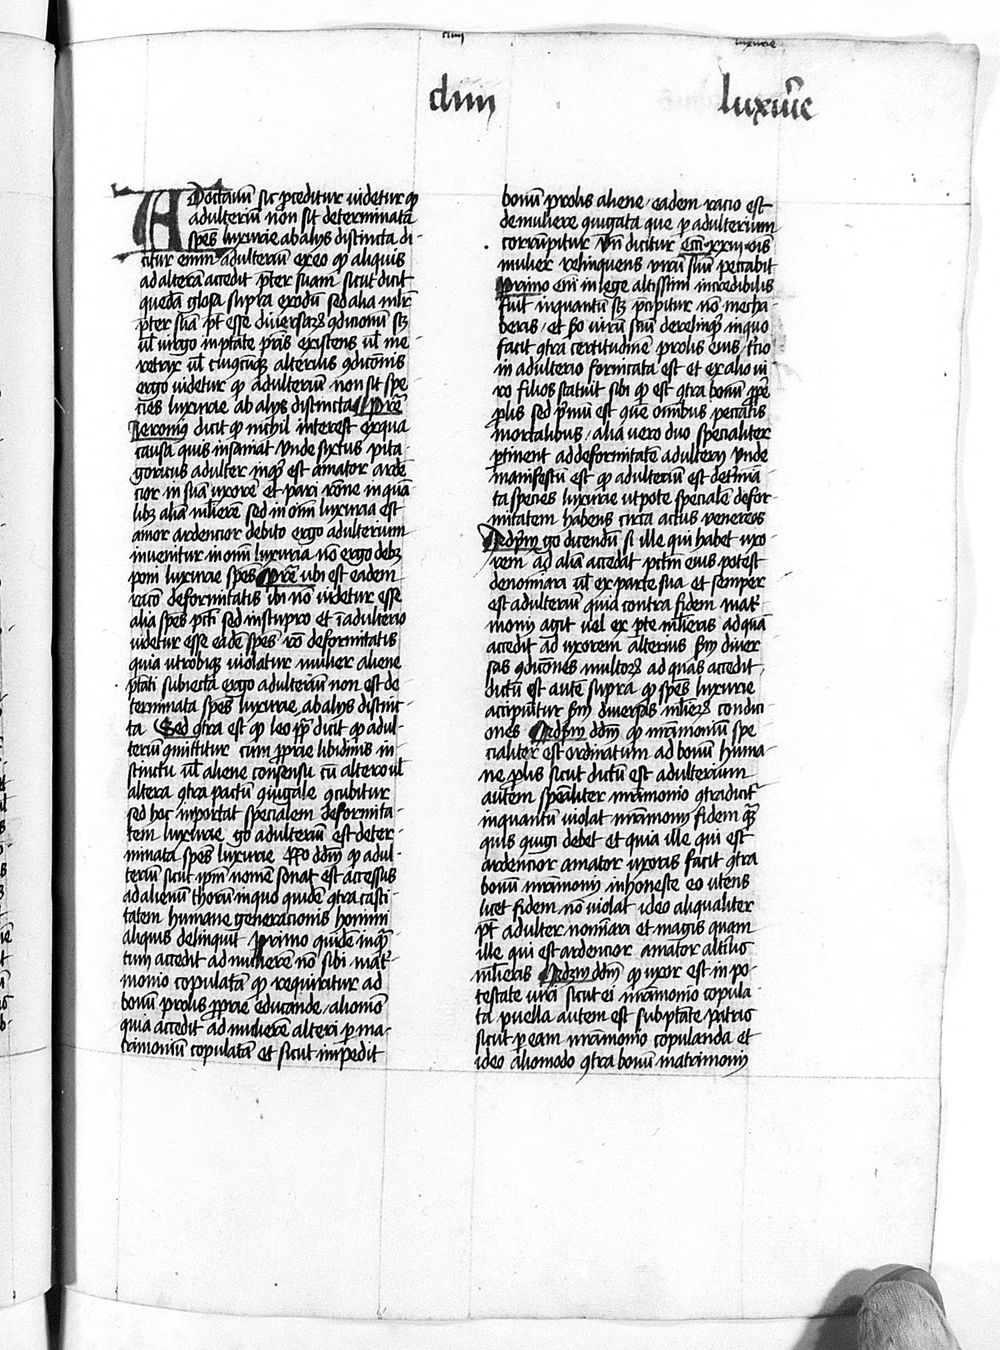 cliiii
luxurie
cliiii luxurie
Ad octauū sic proceditur videtur qꝫ
adulteriū non sit determinata
spēs luxurie ab alijs distincta di-
citur enim adulteriū ex eo qꝫ aliquis
ad alterā accedit p̄ter suam sicut dicit
quedā glosa supra exodū sed alia mlr̄
p̄ter suā pt̄ esse diuersaꝝ ꝯdicionū sꝫ
ul̄ virgo in ptāte pr̄is existens ul̄ me-
retrix ul̄ cuiuscūqꝫ alterius ꝯdicōnis
ergo videtur qꝫ adulteriū non sit spe-
cies luxurie ab alijs distincta Pret̄
Ieronimꝰ dicit qꝫ nichil interest ex qua
causa quis insaniat vnde sixtus pita-
goricus adulter inquit est amator arde-
cior in suā vxorē et pari rōne in quā
libꝫ aliā mlierē sed in om̄i luxuria est
amor ardencior debito ergo adulterium
inuenitur in om̄i luxuria nō ergo debꝫ
poni luxurie spēs Pret̄ ubi est eadem
racō deformitatis ibi nō videtur esse
alia spēs pct̄i sed in stupro et ī adulterio
videtur esse eadē spēs rō deformitatis
quia vtrobiqꝫ violatur mulier aliene
ptāti subiecta ergo adulteriū non est de-
terminata spēs luxurie ab alijs distinc-
ta Sed ꝯtra est qꝫ leo pp̄ dicit qꝫ adul-
terium ꝯmittitur cum proprie libidinis in-
stinctu ul̄ aliene consensu cū altero ul̄
altera ꝯtra pactū ꝯiugale ꝯcubitur
sed hoc importat specialem deformita-
tem luxurie go adulteriū est deter-
minata spēs luxurie R̄o dd̄m qꝫ adul-
teriū sicut ip̄m nomē sonat est accessus
ad alienū thorū in quo quidē ꝯtra casti-
tatem humane generacionis homini
aliquis delinquit primo quidē inqꝫ-
tum accedit ad mulierē nō sibi mat̄-
monio copulatā qꝫ requiritur ad
bonū prolis proprie educande alio mō
quia accedit ad mulierē alteri ꝑ ma-
trimoniū copulatā et sicut impedit
bonū prolis aliene eadem racio est
de muliere ꝯiugata que ꝑ adulterium
corrūpitur Vn̄ dicitur Ecc̄i xxiij ois
mulier relinquens virū suū peccabit
primo em̄ in lege altissimi incredibilis
fuit inquantū sꝫ precipitur nō mecha-
beris et 2o virū suū derelinqꝫ in quo
facit ꝯtra certitudinē prolis eius 3cio
in adulterio fornicata est et ex alio vi
ro filios statuit sibi qꝫ est ꝯtra bonū pp̄e
plis sed pˈmū est quē omnibus peccatis
mortalibus alia vero duo specialiter
ꝑtinent ad deformitatē adulterij vnde
manifestū est qꝫ adulteriū est det̄mīa-
ta species luxurie vtpote specialē defor-
mitatem habens circa actus venereos
Ad pˈm go dicendū si ille qui habet vxo-
rem ad aliā accedat pct̄m eius potest
denominari ul̄ ex parte sua et semper
est adulteriū quia contra fidem mat̄-
monij agit uel ex pte mlieris ad quā
accedit ad vxorem alterius s̄m diuer
sas ꝯdicōnes multoꝝ ad quas accedit
dictū est autē supra qꝫ spēs luxurie
accipiūtur s̄m diuersas mlieꝝ condici-
ones Ad 2m dd̄m qꝫ mr̄imoniū spe
cialiter est ordinatum ad bonū huma-
ne plis sicut dictū est adulterium
autem spēaliter mr̄imonio ꝯtradicit
inquantū violat mr̄imonij fidem quā
quis ꝯiugi debet et quia ille qui est
ardencior amator vxoris facit ꝯtra
bonū mr̄imonij inhoneste eo vtens
licet fidem nō violat ideo aliqualiter
pt̄ adulter nominari et magis quam
ille qui est ardencior amator alteriꝰ
mlieris Ad 3m dd̄m qꝫ vxor est in po-
testate viri sicut ei mr̄imonio copula-
ta puella autem est sub ptāte patris
sicut ꝑ eam mr̄imonio copulanda et
ideo alio modo ꝯtra bonū matrimonij